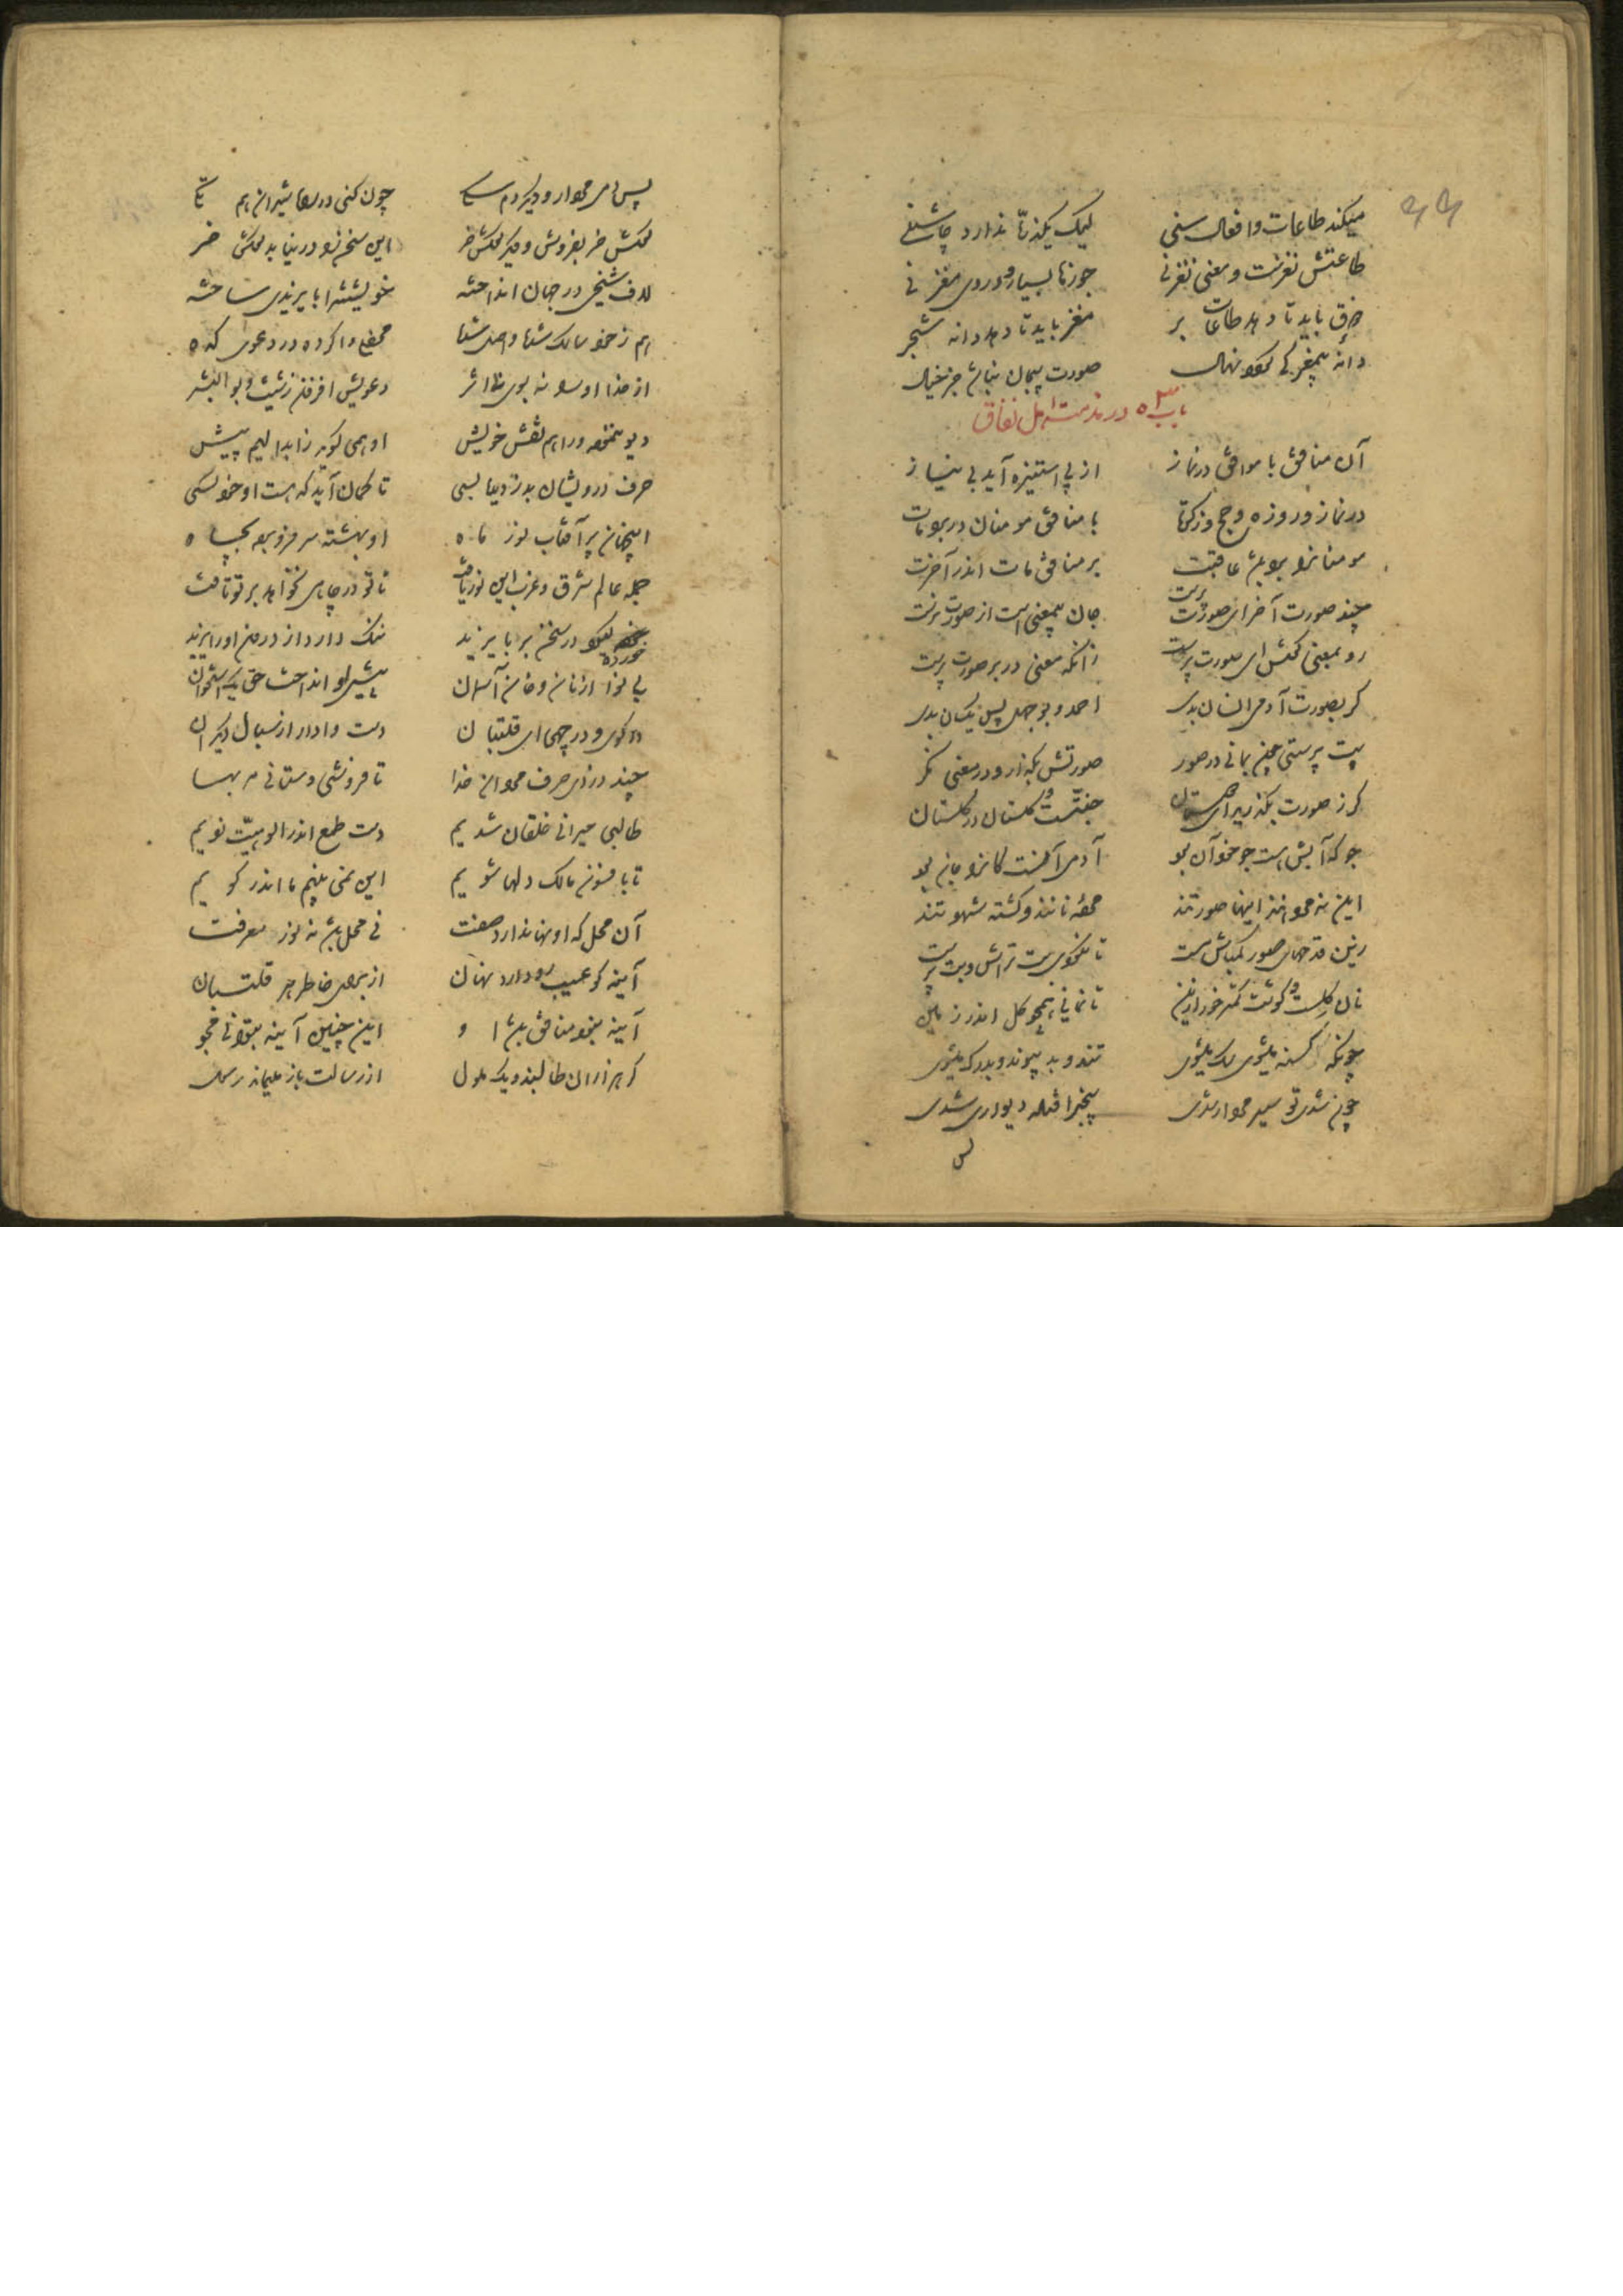 میکند طاعات و افعال سنی لیک یکذره ندارد چاشنی
طاعتش نغزست و معنی نغز نی جوزها بسیار و در وی مغز نی
ذوق باید تا دهد طاعات بر مغز باید تا دهد دانه شجر
دانه بیمغز کی گردد نهال صورت بیجان نباشد جز خیال
باب در مذمت اهل نفاق
آن منافق با موافق در نماز از پی استیزه آید بی نیاز
در نماز و روزه و حج و زکات با منافق مومنان در برد و مات
مومنانرا برد باشد عاقبت بر منافق مات اندر آخرت
چند صورت آخر ای صورت پرست جان بیمعنی است از صورت نرست
رو بمعنی کوش ای صورت پرست زانکه معنی در بر صورت پرست
کر بصورت آدمی انسان بدی احمد و بوجهل پس یکسان بدی
بت پرستی چون بمانی در صور صورتش بگذار و در معنی نگر
کر ز صورت بگذرید ای دوستان جنتست و گلستان در گلستان
جو که آبش هست جو خود آن بود آدمی آنست کانرا جان بود
این نه مردانند اینها صورتند مرده نانند و کشته شهوتند
زین قدحهای صور کم باش مست تا نگردی بت تراش و بت پرست
نان گلست و گوشت کمتر خور ازین تا نمانی همچو گل اندر زمین
چونکه گرسنه میشوی سگ میشوی تند و بد پیوند و بدرگ میشوی
چون شدی تو سیر مرداری شدی بیخبر افتاده دیواری شدی
پس
پس دمی مردار و دیگر دم سگی چون کنی در راه شیران هم تکی
لاف شیخی در جهان انداخته خویشتن را بایزیدی ساخته
هم ز خود سالک شده واصل شده محفلی وا کرده در دعوی کده
از خدا او را نه بوی نه اثر دعویش افزون ز شیث و بوالبشر
دیو ننموده ورا هم نقش خویش او همی گوید ز ابدالیم بیش
حرف درویشان بدزدیده بسی تا گمان آید که هست او خود کسی
اینجهان پر آفتاب نور ماه او بهشته سر فرو برده بچاه
جمله عالم شرق و غرب این نور یافت تا تو در چاهی نخواهد بر تو تافت
خورده گیرد در سخن بر بایزید ننگ دارد از درون او یزید
بی نوا از نان و خوان آسمان پیش او انداخت حق یک استخوان
در گوی و در چهی ای قلتبان دست وادار از سبال دیگران
چند دزدی حرف مردان خدا تا فروشی و ستانی مرحبا
طالبی حیرانی خلقان شدیم دست طمع اندر الوهیت زدیم
تا بافسون مالک دلها شویم این نمی بینیم ما اندر گویم
آن محل که او نهان دارد صفت نی محل باشد نه نور معرفت
آینه کو عیب رو دارد نهان از برای خاطر هر قلتبان
آینه نبود منافق باشد او این چنین آینه تتوانی مجو
گر هزاران طالبند و یک ملول از رسالت باز میماند رسول